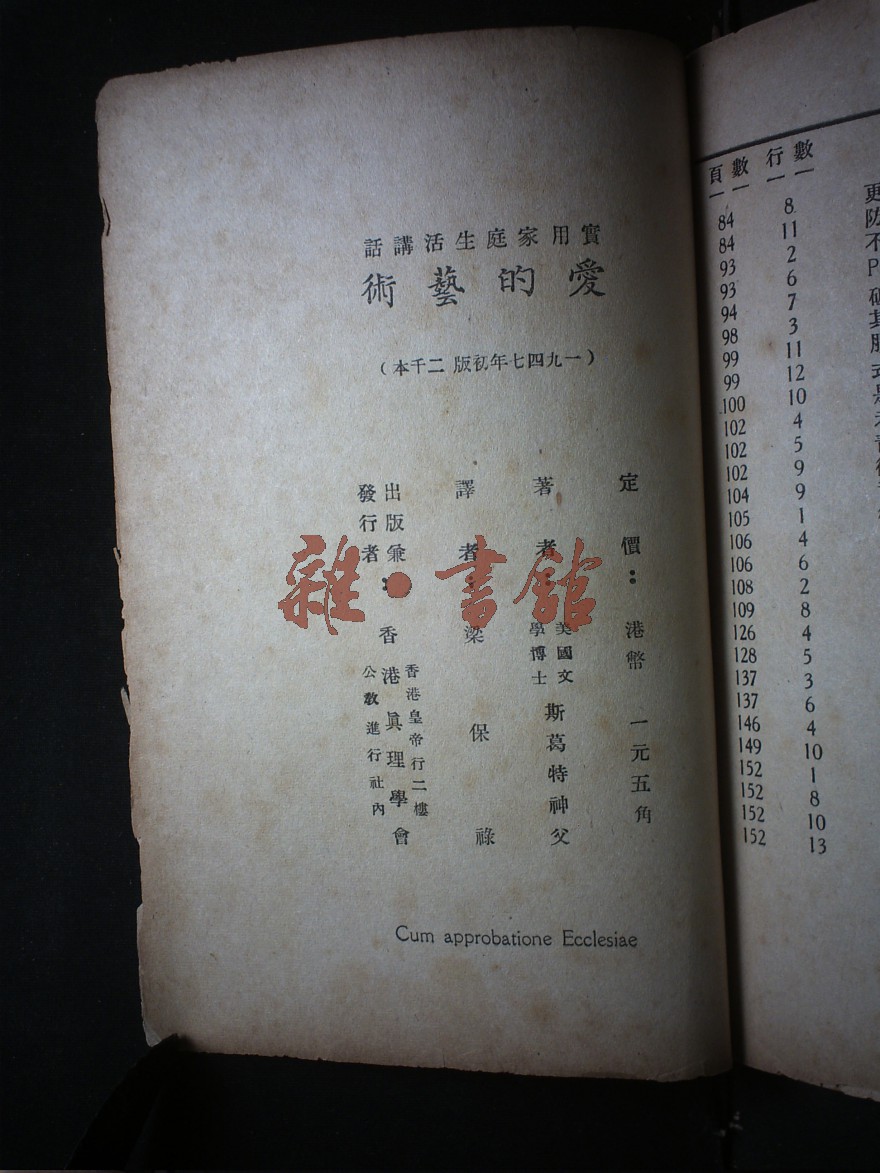 實用家庭生活講話
愛的藝術
（一九四七年初版 二千本）
定價：港幣 一元五角
著者：美國文學博士 斯葛特神父
譯者：梁保祿
出版兼發行者：香港眞理學會
香港皇帝行二樓
公教進行社內
Cum approbatione Ecclesiae
雜·書館
頁數 行數
84 8
84 11
93 2
93 6
94 7
98 3
99 11
99 12
100 10
102 4
102 5
102 9
104 9
105 1
106 4
106 6
108 2
109 8
126 4
128 5
137 3
137 6
146 4
149 10
152 1
152 8
152 10
152 13